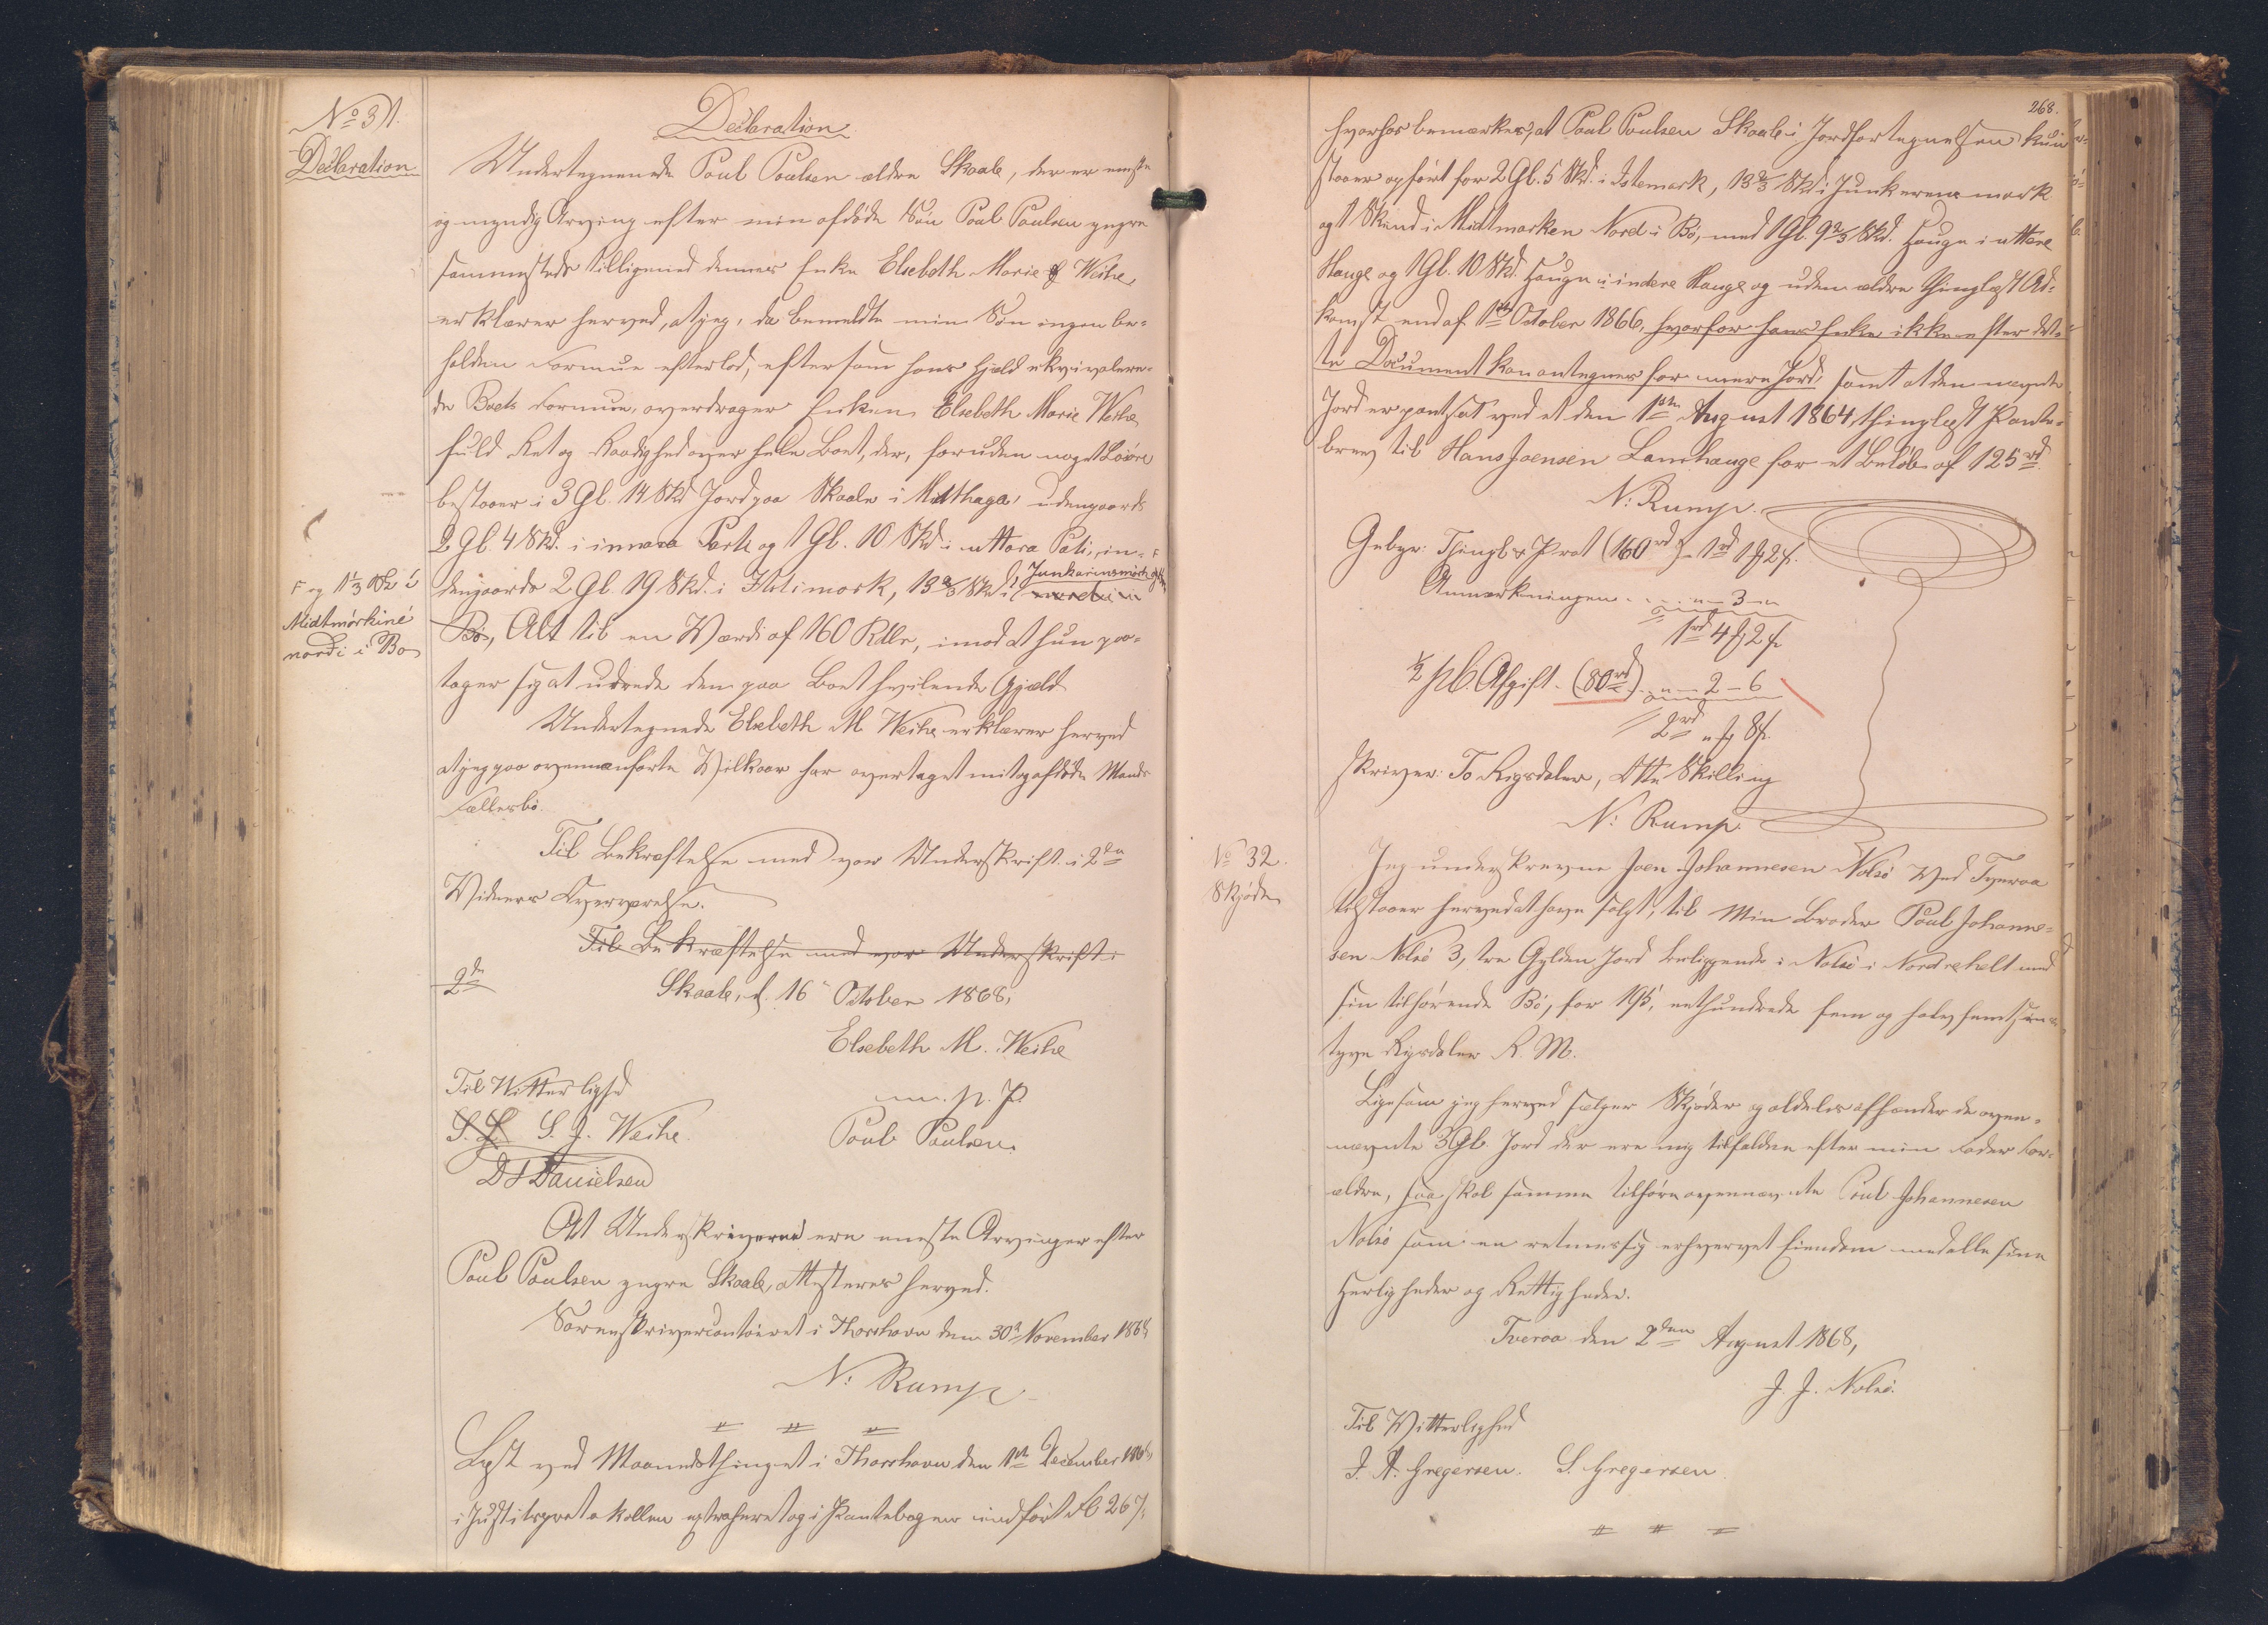 No 31.
Declaration
Declaration
Undertegnede Poul Poulsen ældre Skaale, der er eneste
og myndig Arving efter min afdøde Søn Poul Poulsen yngre
sammesteds tilligemed dennes Enke Elsebeth Marie f Weihe,
erklærer herved, at jeg, da bemeldte min Søn ingen be-
holden Formue efterlod, eftersom hans Gjæld ekvivalere-
de Boets Formue, overdrager Enken Elsebeth Marie Weihe
fuld Ret og Raadighed over hele Boet, der, foruden noget Løsøre
bestaaer i 3 Gl. 14 Skd Jord paa Skaale i Midthaga, udengaards
2 Gl. 4 Skd. i innara Parti og 1 Gl. 10 Skd i uttara Pati, in-
dengaards 2 Gl. 19 Skd. i Istimork, 13 2/3 Skd i Junkarinsmørk
F og 1 1/3 Skd i
Midtmørkiné
nordi i Bø
Bø, Alt til en Værdi af 160 Rdlr, imod at hun paa-
tager sig at udrede den paa Boet hvilende Gjæld
Undertegnede Elsebeth M Weihe erklærer herved
at jeg paa ovenanførte Vilkaar har overtaget mit og afdøde Mands
Fællesbo.
Til Bekræftelse med vor Underskrift i 2de
Vidners Overværelse.
Til Bekræftelse med vor Underskrift i
2de
Skaale, d. 16 October 1868,
Elsebeth M. Weihe
Til Vitterlighed
m. p. P.
S. J. Weihe.
Poul Poulsen
D J Danielsen
At Underskriverne ere eneste Arvinger efter
Poul Poulsen yngre Skaale attesteres herved.
Sorenskrivercontoiret i Thorshavn den 30te November 1868
N: Rump
Læst ved Maanedsthinget i Thorshavn den 1ste December 1868,
i Justitsprotokollen extraheret og i Pantebogen indført Fl 267,
268.
hvorhos bemærkes, at Poul Poulsen Skaale i Jordfortegnelsen kun
staaer opført for 2 Gl. 5 Skd. i Istemark, 13 2/3 Skd i Junkerens mark
og 1 Skind i Midtmarken Nord i Bø, med 1 Gl. 9 2/3 Skd. Hauge i uttere
Hauge og 1 Gl. 10 Skd. Hauge i indere Hauge og uden ældre thinglæst Ad-
komst end af 1ste October 1866, hvorfor hans Enke ikke efter det-
te Document kan antegnes for mere Jord, samt at den nævnte
Jord er pantsat ved et den 1ste August 1864 thinglæst Pante-
brev til Hans Joensen Lamhauge for et Beløb af 125 rd.
N: Rump.
Gebyr: Thingl & Prot (160 rd) - 1 rd 1 ℳ 2 s.
Anmærkningen - - - " - 3 - "
1 rd 4 ℳ 2 s.
1/2 pC. Afgift - (80 rd) - " - 2 - 6
2 rd " ℳ 8 s.
skriver: To Rigsdaler, Otte Skilling
N: Rump.
No 32.
Skjøde
Jeg underskrevne Joen Johannesen Nolsø ved Tveraa
tilstaaer herved at have solgt, til Min Broder Poul Johanne-
sen Nolsø 3, tre Gylden Jord beliggende i Nolsø i Nordrehelt med
sin tilhørende Bø, for 195, eethundrede fem og halvfemtsinds-
tyve Rigsdaler R. M.
Ligesom jeg herved sælger Skjøder og aldeles afhænder de oven-
nævnte 3 Gl. Jord der ere mig tilfalden efter min Fader For-
ældre, saa skal samme tilhøre ovennævnte Poul Johannesen
Nolsø som en retmessig erhvervet Eiendom med alle sine
Herligheder og Rettigheder.
Tveraa den 2den August 1868,
J. J. Nolsø.
Til Vitterlighed
J. A. Gregersen. S. Gregersen.